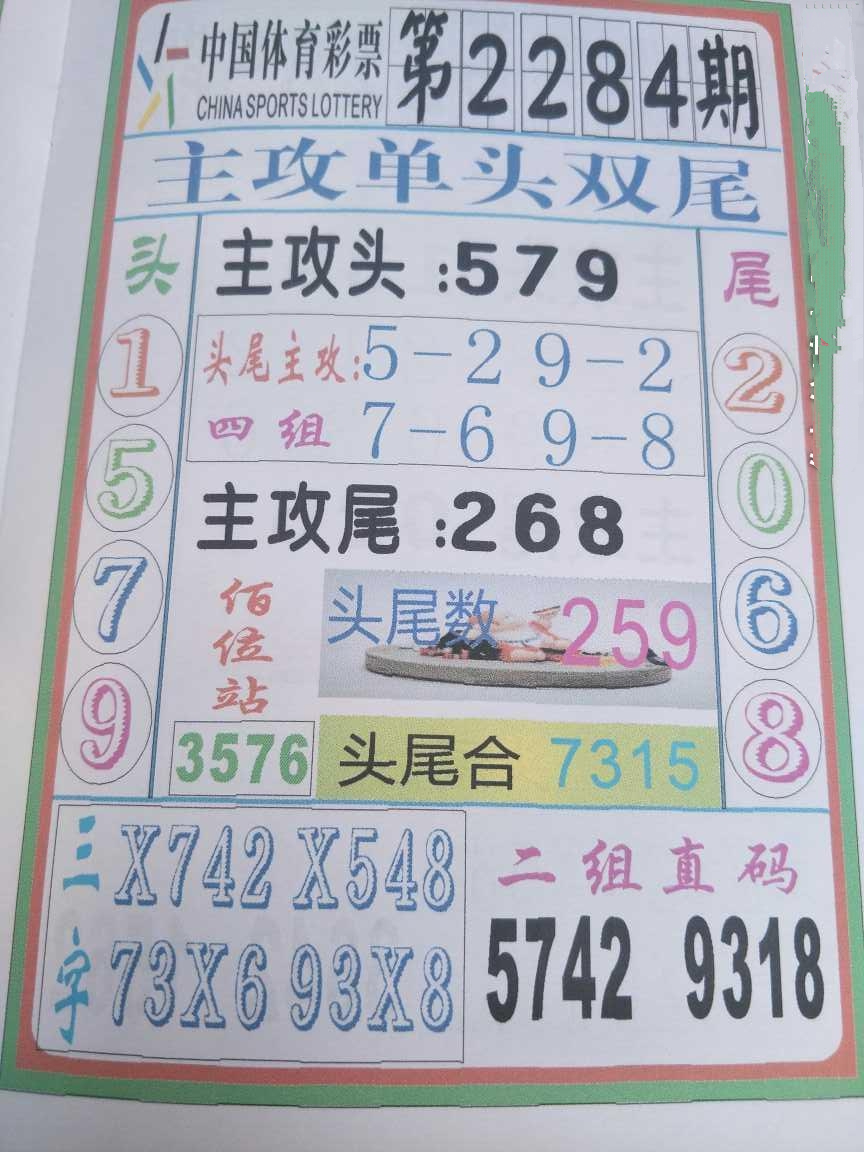 中国体育彩票 第2284期
CHINA SPORTS LOTTERY
主攻单头双尾
头
1
5
7
9
主攻头:579
头尾主攻:5-2 9-2
四组 7-6 9-8
主攻尾:268
佰位站
3576
头尾数 259
头尾合 7315
尾
2
0
6
8
三字
X742 X548
73X6 93X8
二组直码
5742 9318